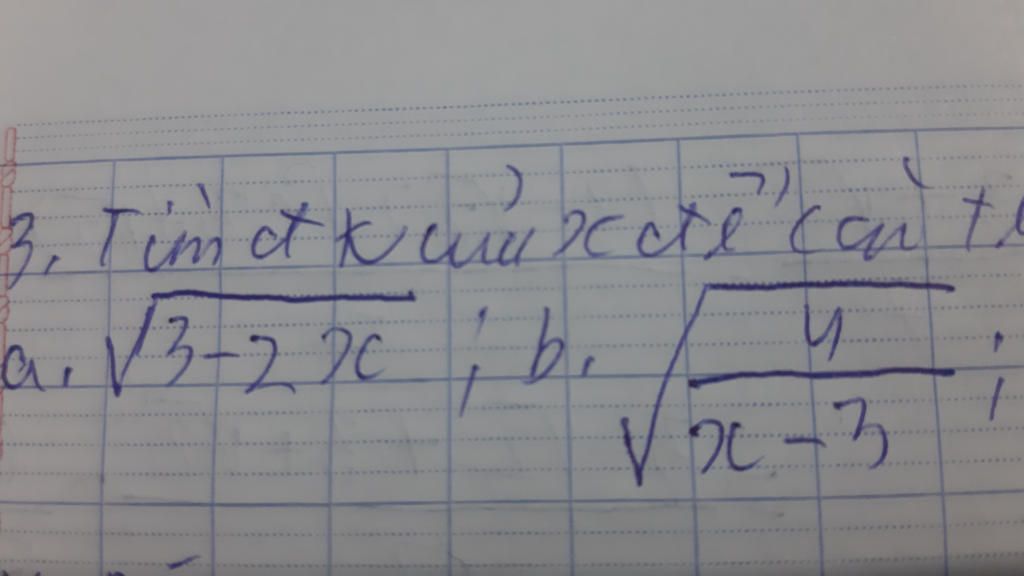 3, Tìm đk của x để căn
a. √3-2x ; b. √4/x-3 ;